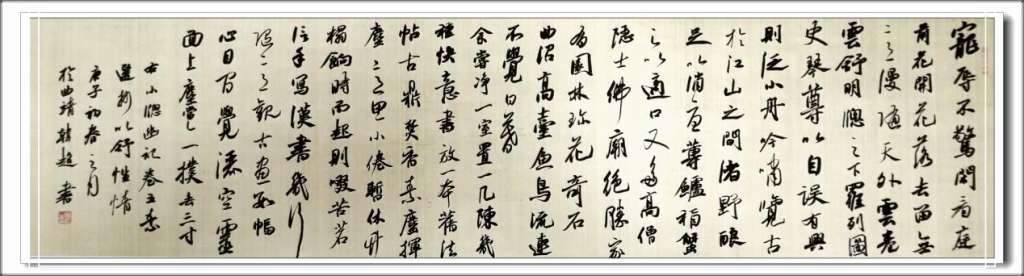 寵辱不驚閒看庭
前花開花落去留無
意漫隨天外雲卷
雲舒明窗之下羅列圖
史琴尊以自誤有興
則泛小舟吟嘯覽古
於江山之間渚野釀
足以消憂蓴鱸稻蟹
足以適口又多高僧
隱士佛廟絕勝家
有園林珍花奇石
曲沼高臺魚鳥流連
不覺日暮
余嘗淨一室置一几陳幾
種快意書放一本舊法
帖古鼎焚香素麈揮
塵意思小倦暫休竹
榻餉時而起則啜苦茗
信手寫漢書幾行
隨意觀古畫數幅
心目間覺灑空靈
面上塵當一撲去三寸
右小窗幽記卷五素
選抄以舒性情
庚子初春之月
於曲靖韓超書